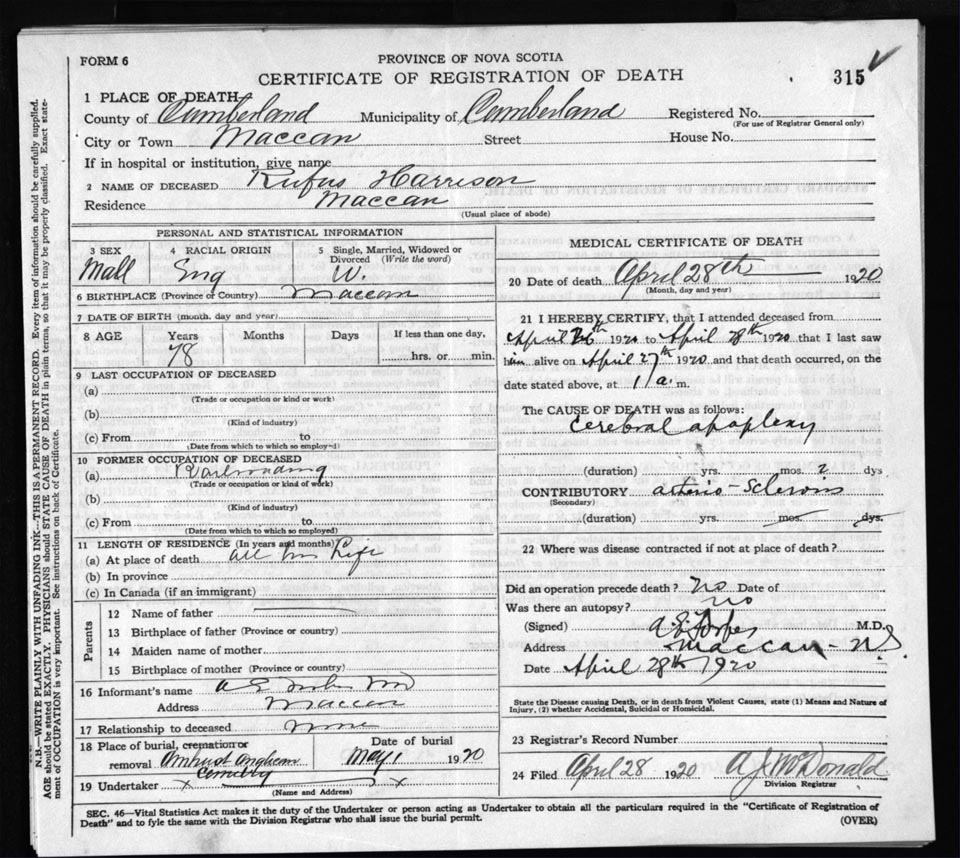 FORM 6
PROVINCE OF NOVA SCOTIA
CERTIFICATE OF REGISTRATION OF DEATH
315
1 PLACE OF DEATH
County of Cumberland Municipality of Cumberland Registered No.
(For use of Registrar General only)
City or Town Maccan Street House No.
If in hospital or institution, give name
2 NAME OF DECEASED Rufus Harrison
Residence Maccan
(Usual place of abode)
PERSONAL AND STATISTICAL INFORMATION
3 SEX 4 RACIAL ORIGIN 5 Single, Married, Widowed or
Divorced (Write the word)
Mall Eng W.
6 BIRTHPLACE (Province or Country) Maccan
7 DATE OF BIRTH (month, day and year)
8 AGE Years Months Days If less than one day,
78 hrs. or min.
9 LAST OCCUPATION OF DECEASED
(a)
(Trade or occupation or kind or work)
(b)
(Kind of industry)
(c) From to
(Date from which to which so employed)
10 FORMER OCCUPATION OF DECEASED
(a) Railroading
(Trade or occupation or kind of work)
(b)
(Kind of industry)
(c) From to
(Date from which to which so employed)
11 LENGTH OF RESIDENCE (In years and months)
(a) At place of death all his Life
(b) In province
(c) In Canada (if an immigrant)
Parents
12 Name of father
13 Birthplace of father (Province or country)
14 Maiden name of mother
15 Birthplace of mother (Province or country)
16 Informant's name A E Forbes MD
Address Maccan
17 Relationship to deceased none
18 Place of burial, cremation or Date of burial
removal Amherst Anglican May 1 1920
Cemetery
19 Undertaker x x
(Name and Address)
MEDICAL CERTIFICATE OF DEATH
20 Date of death April 28th 1920
(Month, day and year)
21 I HEREBY CERTIFY, that I attended deceased from
April 26th 1920 to April 28th 1920 that I last saw
him alive on April 27th 1920 and that death occurred, on the
date stated above, at 1 a. m.
The CAUSE OF DEATH was as follows:
Cerebral apoplexy
(duration) yrs. mos. 2 dys
CONTRIBUTORY arterio-Sclerosis
(Secondary)
(duration) yrs. mos. dys.
22 Where was disease contracted if not at place of death?
Did an operation precede death? no Date of
Was there an autopsy? no
(Signed) A E Forbes M.D.
Address Maccan - N.S.
Date April 28th 1920
State the Disease causing Death, or in death from Violent Causes, state (1) Means and Nature of
Injury, (2) whether Accidental, Suicidal or Homicidal.
23 Registrar's Record Number
24 Filed April 28 1920 A J McDonald
Division Registrar
SEC. 46—Vital Statistics Act makes it the duty of the Undertaker or person acting as Undertaker to obtain all the particulars required in the "Certificate of Registration of
Death" and to fyle the same with the Division Registrar who shall issue the burial permit.
(OVER)
N.B.—WRITE PLAINLY WITH UNFADING INK—THIS IS A PERMANENT RECORD. Every item of information should be carefully supplied.
AGE should be stated EXACTLY. PHYSICIANS should STATE CAUSE OF DEATH in plain terms, so that it may be properly classified. Exact state-
ment of OCCUPATION is very important. See instructions on back of Certificate.